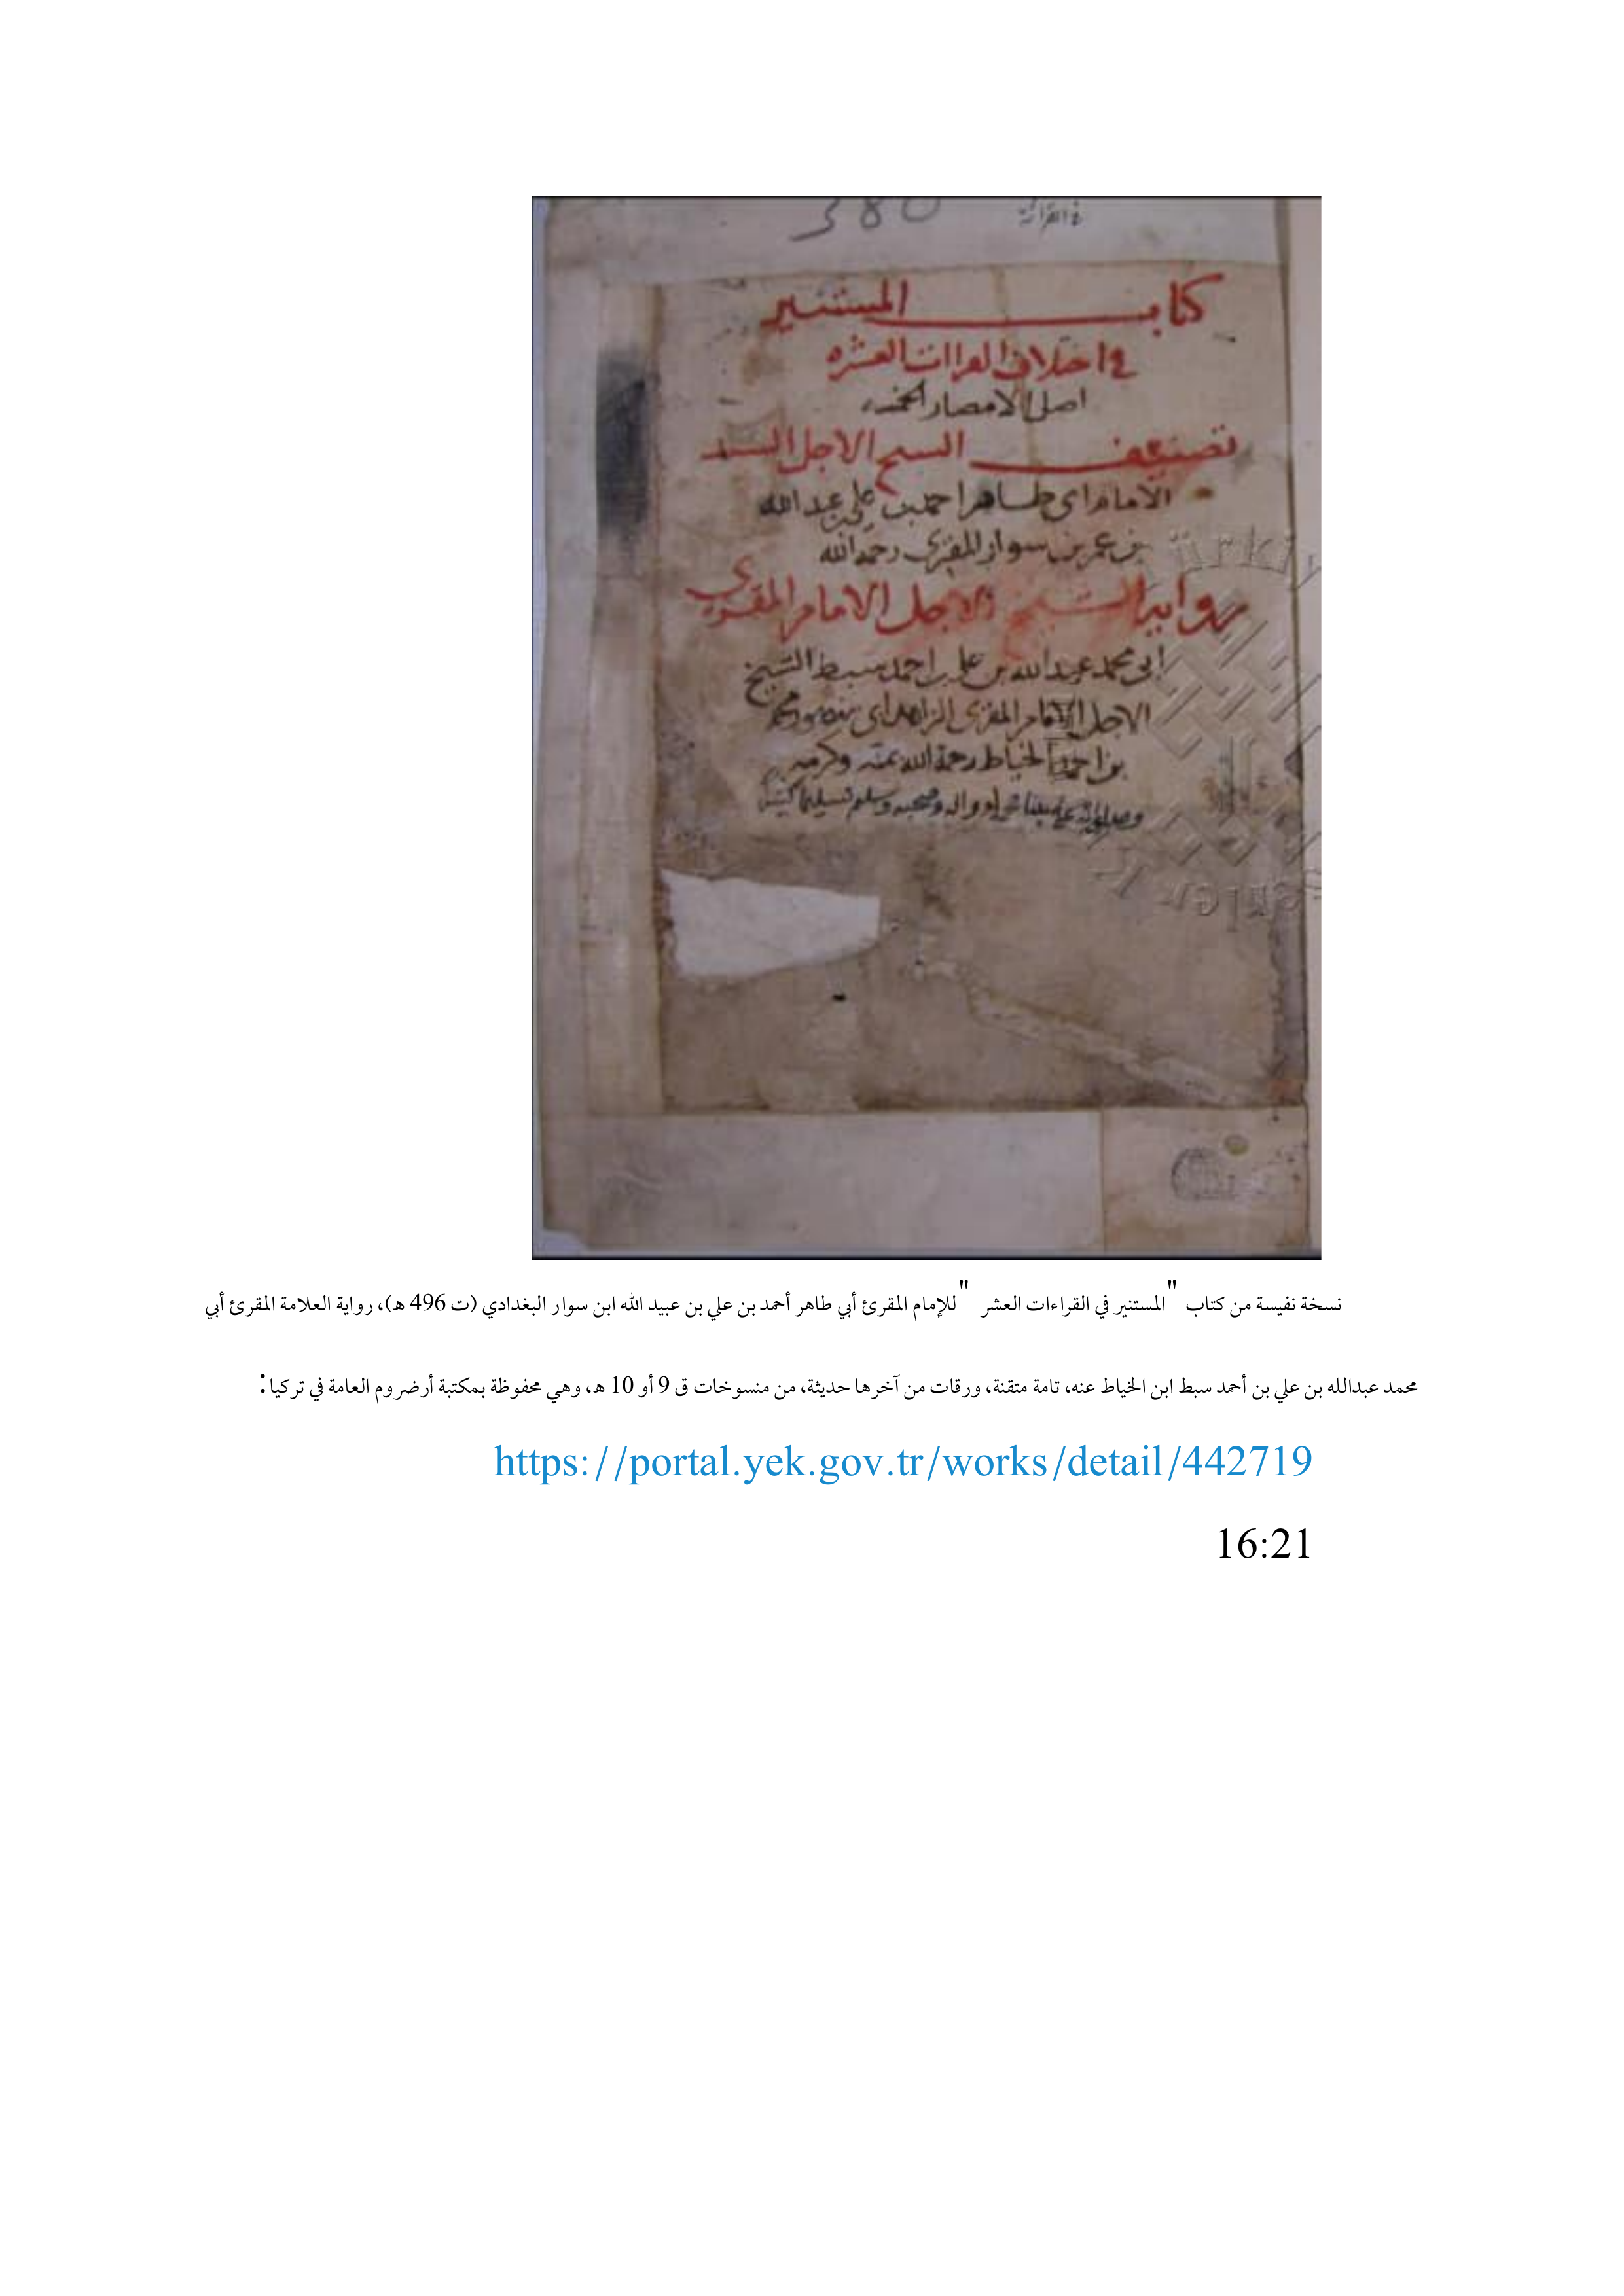 380
في القرائة
كتاب المستنير
في اختلاف القراات العشره
اهل الامصار الخمسه
تصنيف الشيخ الاجل السيد
الامام ابي طاهر احمد بن علي بن عبد الله
بن عمر بن سوار المقرى رحمه الله
رواية الشيخ الاجل الامام المقرى
ابي محمد عبد الله بن علي بن احمد سبط الشيخ
الاجل الامام المقرى الزاهد ابي منصور محمد
بن احمد الخياط رحمة الله عنه وكرمه
وصلى الله على سيدنا محمد واله وصحبه وسلم تسليما كثيرا
نسخة نفيسة من كتاب "المستنير في القراءات العشر" للإمام المقرئ أبي طاهر أحمد بن علي بن عبيد الله ابن سوار البغدادي (ت 496 هـ)، رواية العلامة المقرئ أبي
محمد عبدالله بن علي بن أحمد سبط ابن الخياط عنه، تامة متقنة، ورقات من آخرها حديثة، من منسوخات ق 9 أو 10 هـ، وهي محفوظة بمكتبة أرضروم العامة في تركيا:
https://portal.yek.gov.tr/works/detail/442719
16:21